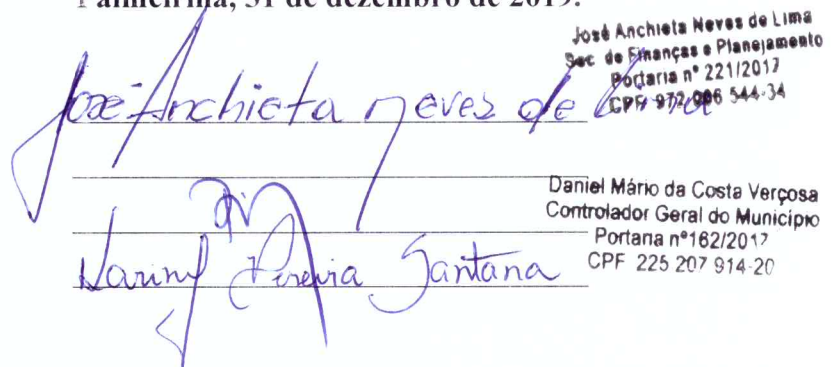 Palmeirina, 31 de dezembro de 2019.
José Anchieta Neves de Lima
Sec de Finanças e Planejamento
Portaria nº 221/2017
CPF 972 006 544-34
José Anchieta neves de Lima
Daniel Mário da Costa Verçosa
Controlador Geral do Município
Portaria nº162/2017
CPF 225 207 914-20
Pereira Santana